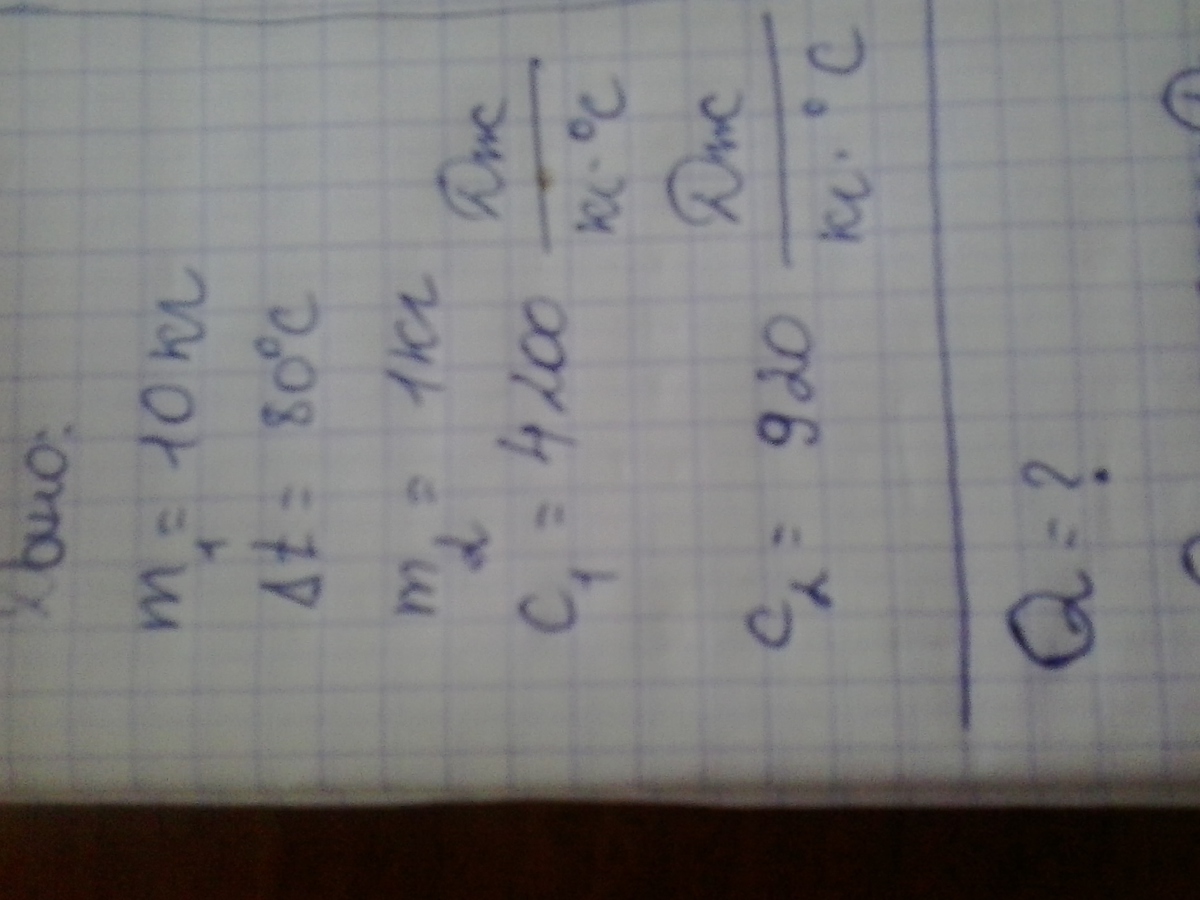 Дано:
m₁ = 10 кг
Δt = 80°C
m₂ = 1 кг
C₁ = 4200 Дж/кг·°C
C₂ = 920 Дж/кг·°C
Q = ?